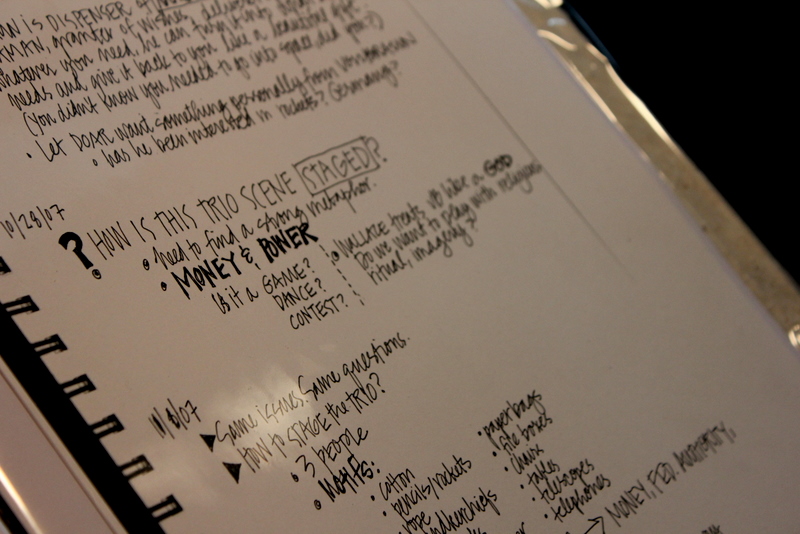 IS DISPENSER
granter of wishes,
whatever you need, he can turn it into
needs and give it back to you like a beautiful gift.
(You didn't know you needed to go into space, did you?)
• Let DOAR want something personally from VON BRAUN
• has he been interested in rockets? Germany?
10/28/07
? HOW IS THIS TRIO SCENE STAGED?
• need to find a strong metaphor.
• MONEY & POWER
Is it a GAME?
DANCE?
CONTEST?
• WALLACE treats VB like a GOD
Do we want to play with religious
ritual, imagery?
11/6/07
▶ Same issues. Same questions.
▶ HOW to STAGE the TRIO?
• 3 people
• Motifs:
• cotton
pencils/rockets
rope
handkerchiefs
• paper bags
• file boxes
• chairs
• tables
• telescopes
• telephones
→ MONEY, FED. AUTHORITY,